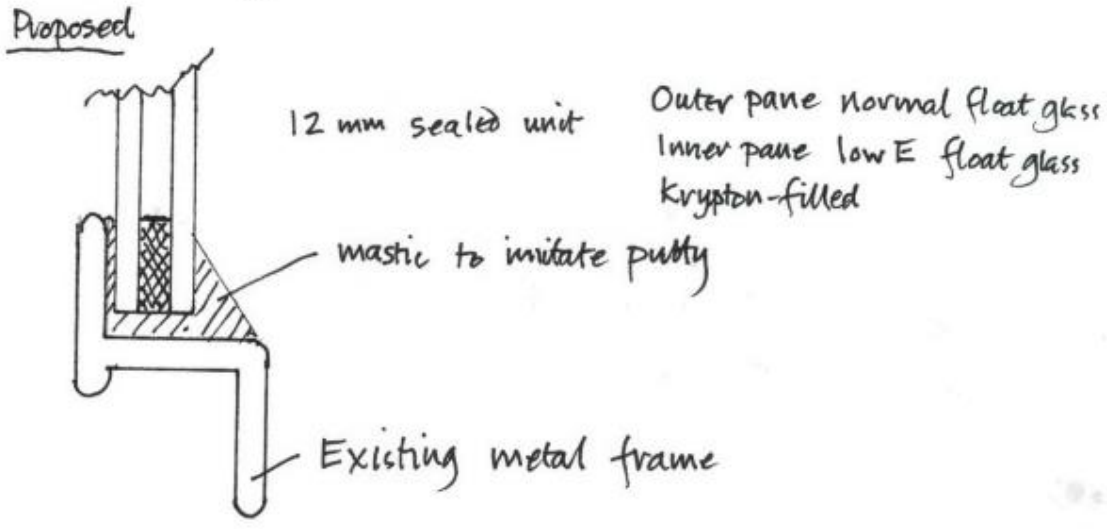 Proposed
12 mm sealed unit
Outer pane normal float glass
Inner pane low E float glass
Krypton-filled
mastic to imitate putty
Existing metal frame